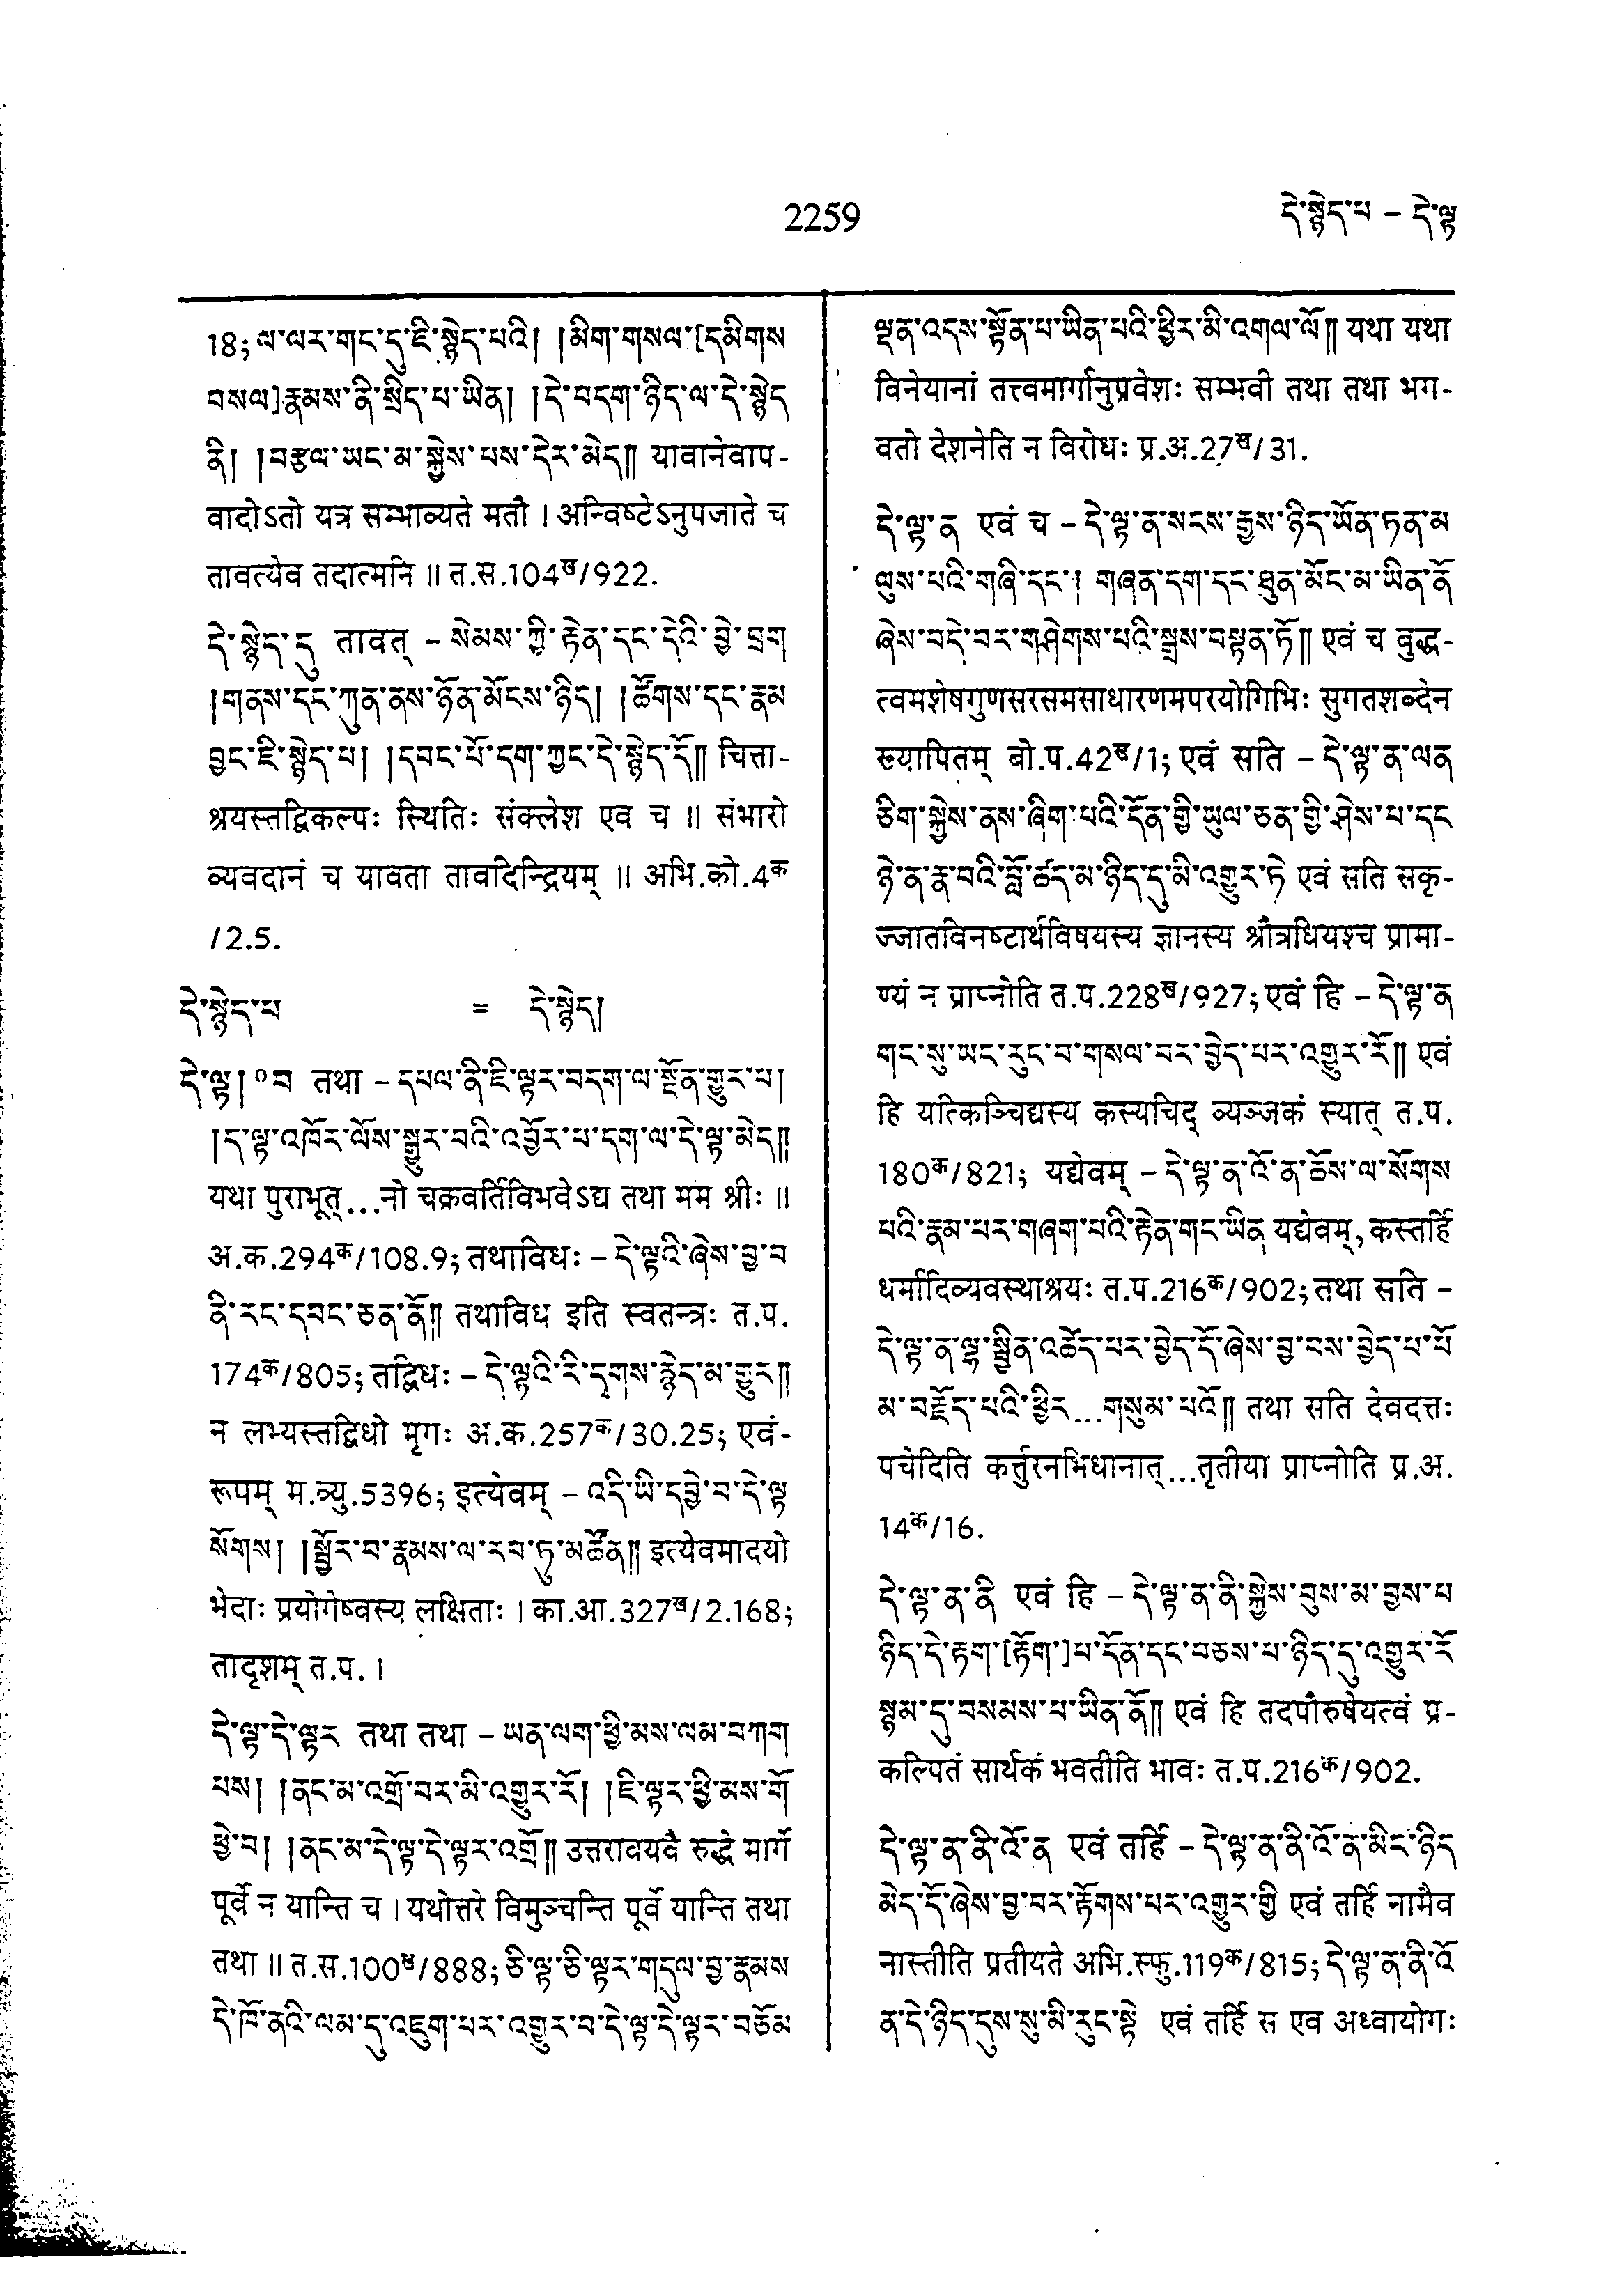 2259
དེ་སྙེད་པ – དེ་ལྟ
18; ལ་ལར་གང་དུ་ཇི་སྙེད་པའི། །མིག་གསལ་[དམིགས
བསལ]རྣམས་ནི་སྲིད་པ་ཡིན། །དེ་བདག་ཉིད་ལ་དེ་སྙེད
ནི། །བརྩལ་ཡང་མ་སྐྱེས་པས་དེར་མེད༎ यावानेवाप-
वादोऽतो यत्र सम्भाव्यते मतौ । अन्विष्टेऽनुपजाते च
तावत्येव तदात्मनि ॥ त.स.104ख/922.
དེ་སྙེད་དུ तावत् – སེམས་ཀྱི་རྟེན་དང་དེའི་བྱེ་བྲག
།གནས་དང་ཀུན་ནས་ཉོན་མོངས་ཉིད། །ཚོགས་དང་རྣམ
བྱང་ཇི་སྙེད་པ། །དབང་པོ་དག་ཀྱང་དེ་སྙེད་དོ༎ चित्ता-
श्रयस्तद्विकल्पः स्थितिः संक्लेश एव च ॥ संभारो
व्यवदानं च यावता तावदिन्द्रियम् ॥ अभि.को.4क
/2.5.
དེ་སྙེད་པ = དེ་སྙེད།
དེ་ལྟ། ०བ तथा – དཔལ་ནི་ཇི་ལྟར་བདག་ལ་སྔོན་གྱུར་པ།
།ད་ལྟ་འཁོར་ལོས་སྒྱུར་བའི་འབྱོར་པ་དག་ལ་དེ་ལྟ་མེད༎
यथा पुराभूत्...नो चक्रवर्तिविभवेऽद्य तथा मम श्रीः ॥
अ.क.294क/108.9; तथाविधः – དེ་ལྟའི་ཞེས་བྱ་བ
ནི་རང་དབང་ཅན་ནོ༎ तथाविध इति स्वतन्त्रः त.प.
174क/805; तद्विधः – དེ་ལྟའི་རི་དྭགས་རྙེད་མ་གྱུར༎
न लभ्यस्तद्विधो मृगः अ.क.257क/30.25; एवं-
रूपम् म.व्यु.5396; इत्येवम् – འདི་ཡི་དབྱེ་བ་དེ་ལྟ
སོགས། །སྦྱོར་བ་རྣམས་ལ་རབ་ཏུ་མཚོན༎ इत्येवमादयो
भेदाः प्रयोगेष्वस्य लक्षिताः । का.आ.327ख/2.168;
तादृशम् त.प. ।
དེ་ལྟ་དེ་ལྟར तथा तथा – ཡན་ལག་ཕྱི་མས་ལམ་བཀག
པས། །ནང་མ་འགྲོ་བར་མི་འགྱུར་རོ། །ཇི་ལྟར་ཕྱི་མས་གོ
ཕྱེ་བ། །ནང་མ་དེ་ལྟ་དེ་ལྟར་འགྲོ༎ उत्तरावयवै रुद्धे मार्गे
पूर्वे न यान्ति च । यथोत्तरे विमुञ्चन्ति पूर्वे यान्ति तथा
तथा ॥ त.स.100ख/888; ཅི་ལྟ་ཅི་ལྟར་གདུལ་བྱ་རྣམས
དེ་ཁོ་ནའི་ལམ་དུ་འཇུག་པར་འགྱུར་བ་དེ་ལྟ་དེ་ལྟར་བཅོམ
ལྡན་འདས་སྟོན་པ་ཡིན་པའི་ཕྱིར་མི་འགལ་ལོ༎ यथा यथा
विनेयानां तत्त्वमार्गानुप्रवेशः सम्भवी तथा तथा भग-
वतो देशनेति न विरोधः प्र.अ.27ख/31.
དེ་ལྟ་ན एवं च – དེ་ལྟ་ན་སངས་རྒྱས་ཉིད་ཡོན་ཏན་མ
ལུས་པའི་གཞི་དང་། གཞན་དག་དང་ཐུན་མོང་མ་ཡིན་ནོ
ཞེས་བདེ་བར་གཤེགས་པའི་སྒྲས་བསྟན་ཏོ༎ एवं च बुद्ध-
त्वमशेषगुणसरसमसाधारणमपरयोगिभिः सुगतशब्देन
ख्यापितम् बो.प.42ख/1; एवं सति – དེ་ལྟ་ན་ལན
ཅིག་སྐྱེས་ནས་ཞིག་པའི་དོན་གྱི་ཡུལ་ཅན་གྱི་ཤེས་པ་དང
ཉེ་ན་རྣ་བའི་བློ་ཚད་མ་ཉིད་དུ་མི་འགྱུར་ཏེ एवं सति सकृ-
ज्जातविनष्टार्थविषयस्य ज्ञानस्य श्रौत्रधियश्च प्रामा-
ण्यं न प्राप्नोति त.प.228ख/927; एवं हि – དེ་ལྟ་ན
གང་སུ་ཡང་རུང་བ་གསལ་བར་བྱེད་པར་འགྱུར་རོ༎ एवं
हि यत्किञ्चिद्यस्य कस्यचिद् व्यञ्जकं स्यात् त.प.
180क/821; यद्येवम् – དེ་ལྟ་ན་འོ་ན་ཆོས་ལ་སོགས
པའི་རྣམ་པར་གཞག་པའི་རྟེན་གང་ཡིན यद्येवम्, कस्तर्हि
धर्मादिव्यवस्थाश्रयः त.प.216क/902; तथा सति –
དེ་ལྟ་ན་ལྷ་སྦྱིན་འཚོད་པར་བྱེད་དོ་ཞེས་བྱ་བས་བྱེད་པ་པོ
མ་བརྗོད་པའི་ཕྱིར...གསུམ་པའོ༎ तथा सति देवदत्तः
पचेदिति कर्त्तुरनभिधानात्...तृतीया प्राप्नोति प्र.अ.
14क/16.
དེ་ལྟ་ན་ནི एवं हि – དེ་ལྟ་ན་ནི་སྐྱེས་བུས་མ་བྱས་པ
ཉིད་དེ་རྟག་[རྟོག་]པ་དོན་དང་བཅས་པ་ཉིད་དུ་འགྱུར་རོ
སྙམ་དུ་བསམས་པ་ཡིན་ནོ༎ एवं हि तदपौरुषेयत्वं प्र-
कल्पितं सार्थकं भवतीति भावः त.प.216क/902.
དེ་ལྟ་ན་ནི་འོ་ན एवं तर्हि – དེ་ལྟ་ན་ནི་འོ་ན་མིང་ཉིད
མེད་དོ་ཞེས་བྱ་བར་རྟོགས་པར་འགྱུར་གྱི एवं तर्हि नामैव
नास्तीति प्रतीयते अभि.स्फु.119क/815; དེ་ལྟ་ན་ནི་འོ
ན་དེ་ཉིད་དུས་སུ་མི་རུང་སྟེ एवं तर्हि स एव अध्वायोगः